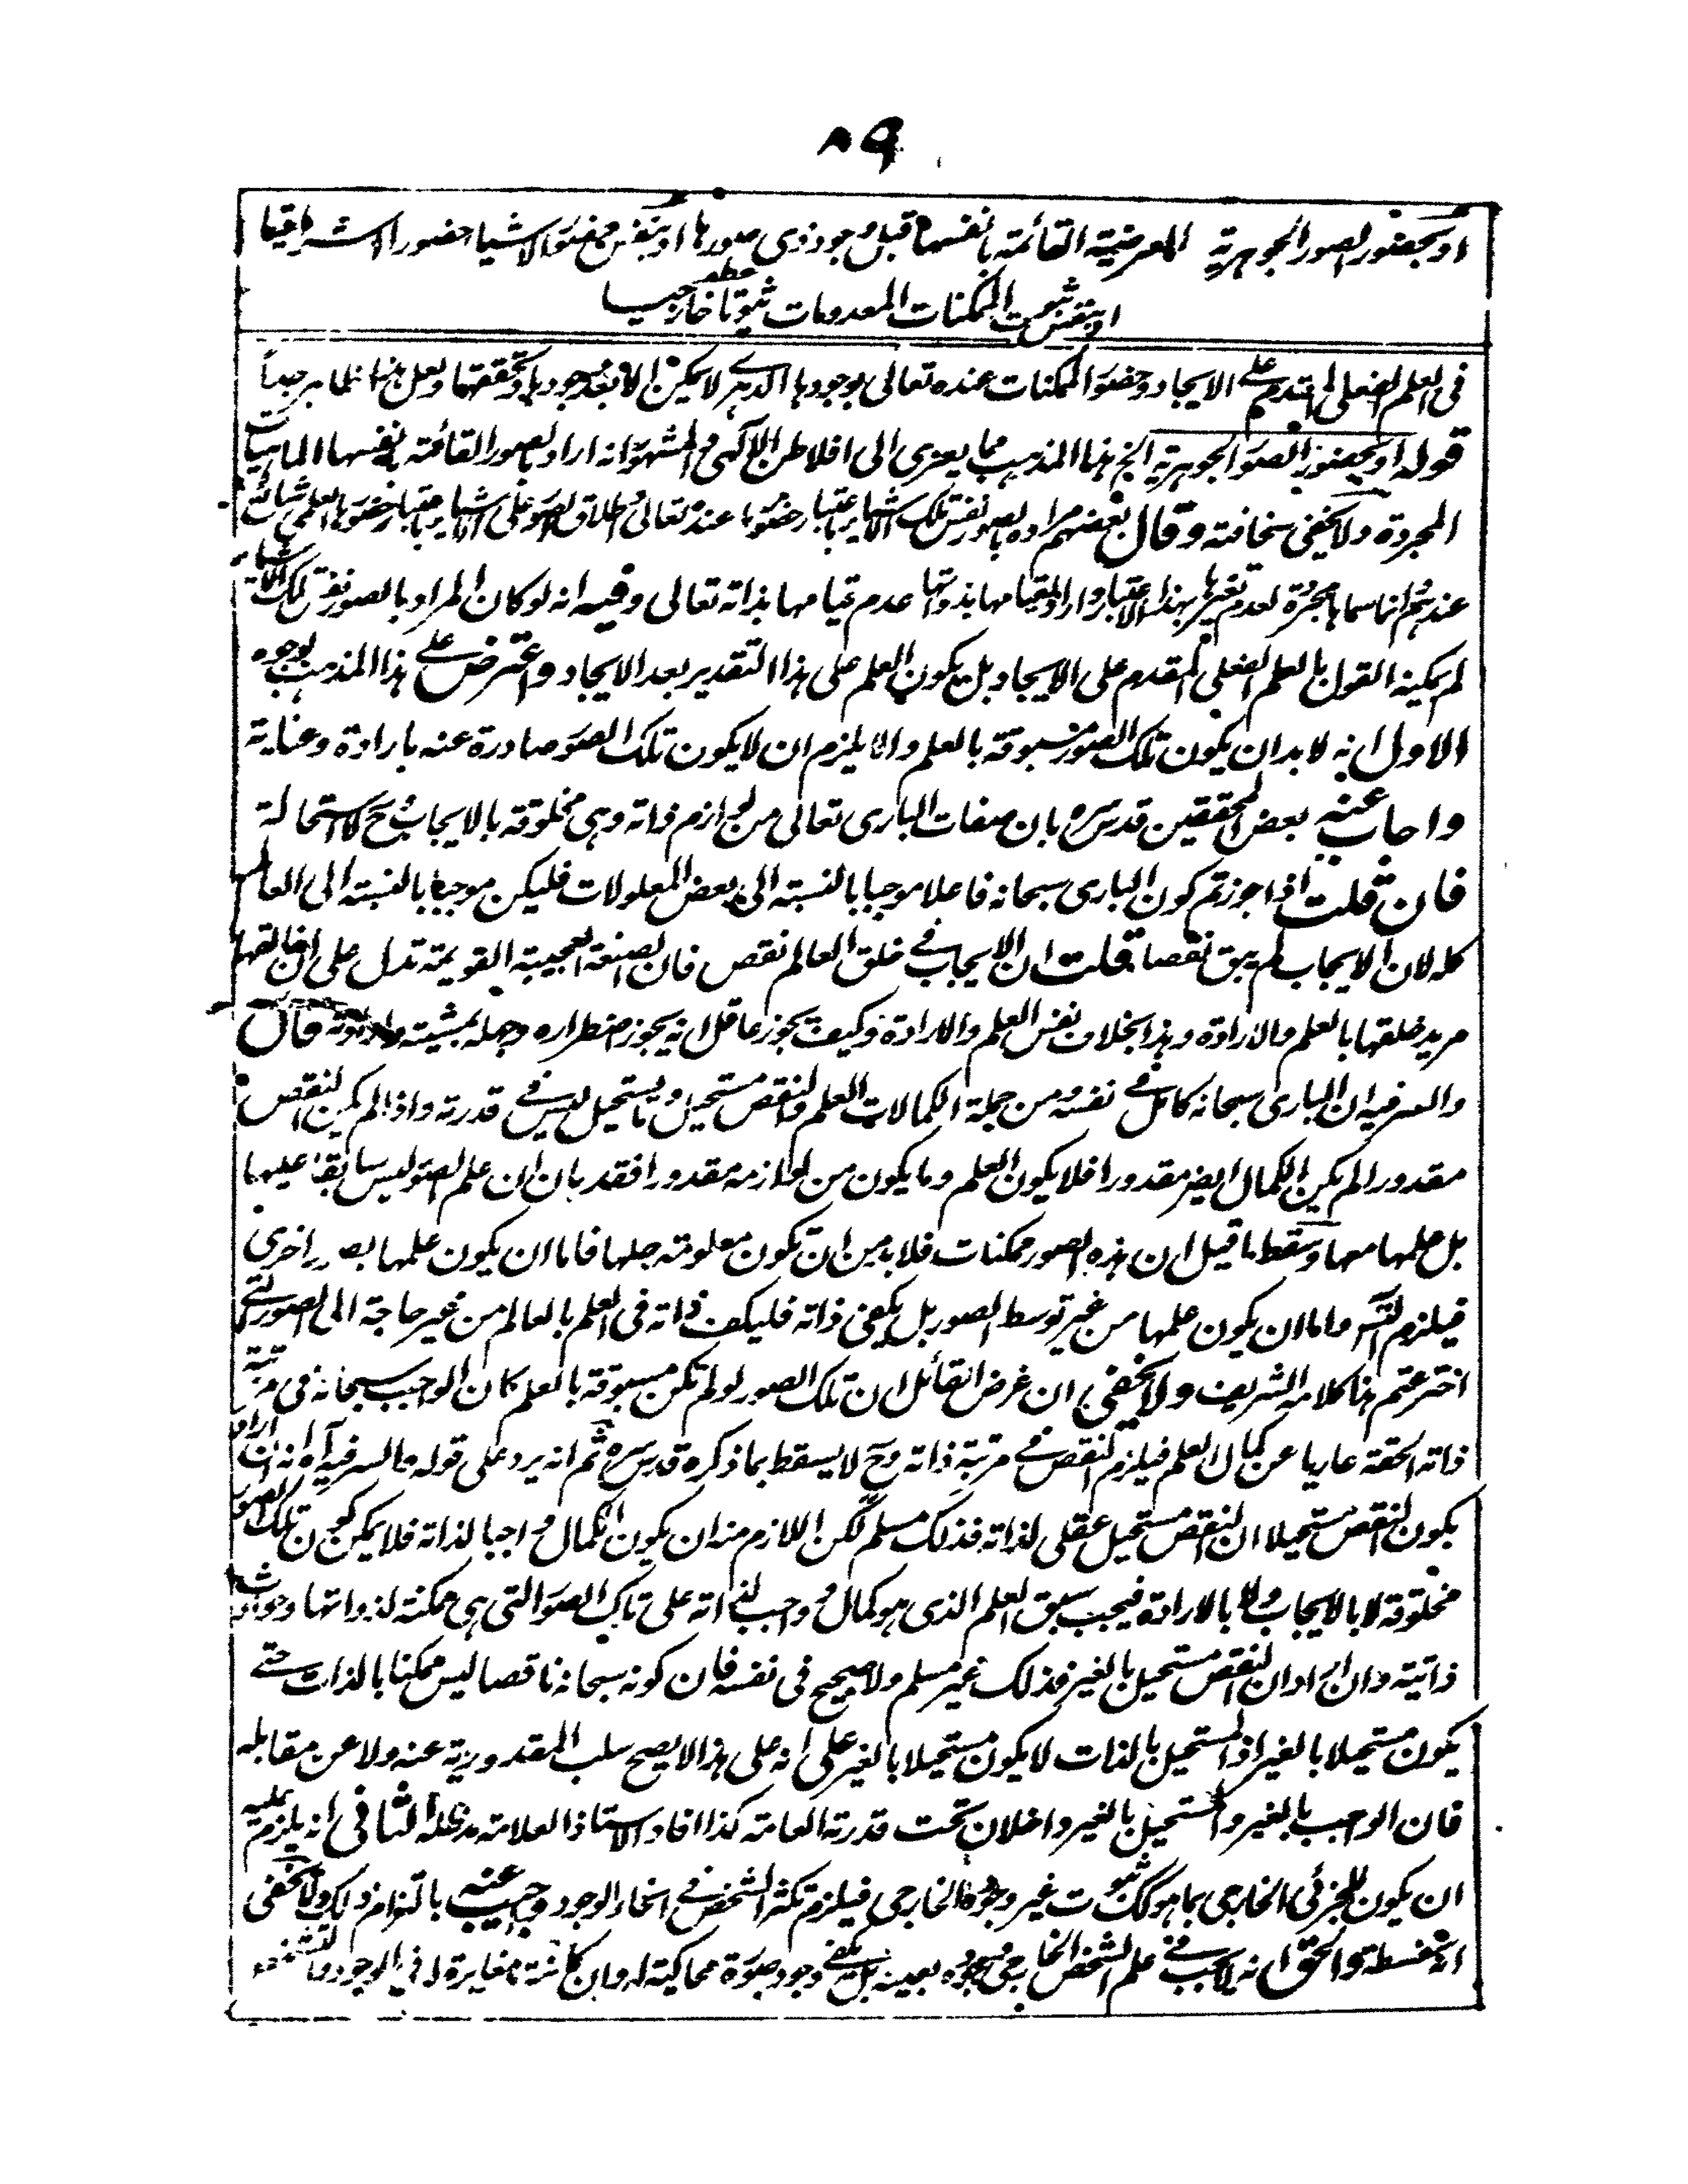 ٨٩
او بحضور الصور الجوهرية العرضية القائمة بانفسها قبل وجود ذى صورها او بنفس حضور الاشيا حضورا اشراقيا
او بنفس ثبوت الممكنات المعدومات ثبوتا خارجيا
فى العلم الفعلى المتقدم على الايجاد وحضور الممكنات عنده تعالى بوجودها الدهرى لا يمكن الا بعد وجودها وتحققها ولعل هذا ظاهر جدا
قوله او بحضور الصور الجوهرية الخ هذا المذهب مما يعزى الى افلاطن الآلهى والمشهور انه اراد بالصور القائمة بانفسها الماهيات
المجردة ولا يخفى سخافته وقال بعضهم مراده بالصور نفس تلك الاشيا باعتبار حضورها عنده تعالى واطلاق الصور على الاشيا باعتبار حضورها العلمى شائع
عندهم وانما سماها مجردة لعدم تغيرها بهذا الاعتبار واراد بقيامها بذواتها عدم قيامها بذاته تعالى وفيه انه لو كان المراد بالصور نفس تلك الاشياء
لم يمكنه القول بالعلم الفعلى المقدم على الايجاد بل يكون العلم على هذا التقدير بعد الايجاد واعترض على هذا المذهب بوجوه
الاول انه لا بد ان يكون تلك الصور مسبوقة بالعلم والا يلزم ان لا يكون تلك الصور صادرة عنه بارادة وعناية
واجاب عنه بعض المحققين قدس سره بان صفات البارى تعالى من لوازم ذاته وهى مخلوقة بالايجاب ح لا استحالة
فان قلت اذا جوزتم كون البارى سبحانه فاعلا موجبا بالنسبة الى بعض المعلولات فليكن موجبا بالنسبة الى العالم
كله لان الايجاب لم يبق نقصا قلت ان الايجاب فى خلق العالم نقص فان الصنعة العجيبة القويمة تدل على ان خالقها
مريد خلقها بالعلم والارادة وهذا بخلاف نفس العلم والارادة وكيف يجوز عاقل انه يجوز اضطراره وجهله بمشيته وارادته قال
والسر فيه ان البارى سبحانه كامل فى نفسه ومن جملة الكمالات العلم والنقص مستحيل وما يستحيل ليس فى قدرته واذا لم يكن النقص
مقدورا لم يكن الكمال ايضا مقدورا فلا يكون العلم وما يكون من لوازمه مقدورا فقد بان ان علم الصور ليس سابقا عليها
بل علمها معها وسقط ما قيل ان هذه الصور ممكنات فلا بد من ان تكون معلومة جلها فاما ان يكون علمها بصور اخرى
فيلزم التس واما ان يكون علمها من غير توسط الصور بل يكفى ذاته فليكف ذاته فى العلم بالعالم من غير حاجة الى الصور التى
اخترعتم هذا كلامه الشريف ولا يخفى ان غرض القائل ان تلك الصور لو لم تكن مسبوقة بالعلم كان الواجب سبحانه فى مرتبة
ذاته الحقة عاريا عن كمال العلم فيلزم النقص فى مرتبة ذاته وح لا يسقط بما ذكره قدس سره ثم انه يرد على قوله والسر فيه آه انه ان اراد
بكون النقص مستحيلا ان النقص مستحيل عقلى لذاته فذلك مسلم لكن اللازم منه ان يكون الكمال واجبا لذاته فلا يمكن كون تلك الصور
مخلوقة لا بالايجاب ولا بالارادة فيجب سبق العلم الذى هو كمال واجب لذاته على تلك الصور التى هى ممكنة لذواتها وحوادث
ذاتية وان اراد ان النقص مستحيل بالغير فذلك غير مسلم ولا صحيح فى نفسه فان كونه سبحانه ناقصا ليس ممكنا بالذات حتى
يكون مستحيلا بالغير اذ المستحيل بالذات لا يكون مستحيلا بالغير على انه على هذا لا يصح سلب المقدورية عنه ولا عن مقابله
فان الواجب بالغير والمستحيل بالغير داخلان تحت قدرته العامة كذا افاد الاستاذ العلامة مد ظله الثانى انه يلزم عليه
ان يكون للجزئى الخارجى بما هو كك ثبوت غير وجوده الخارجى فيلزم تكثر الشخص فى انحاء الوجود واجيب عنه بالتزام ذلك ولا يخفى
انه سفسطة والحق انه لا يجب فى علم الشخص الخارجى وجوده بعينه بل يكفى وجود صورة محاكية له وان كانت مغايرة له فى الوجود والتشخص